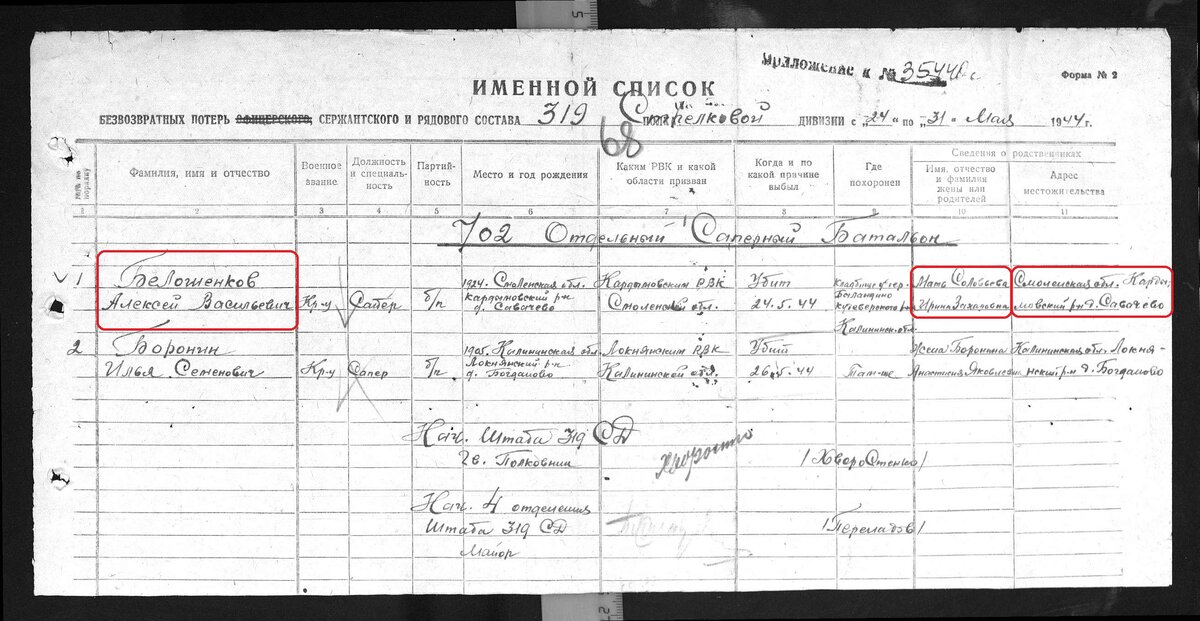 Приложение к № 35446с
Форма № 2
ИМЕННОЙ СПИСОК
БЕЗВОЗВРАТНЫХ ПОТЕРЬ ОФИЦЕРСКОГО, СЕРЖАНТСКОГО И РЯДОВОГО СОСТАВА 319 Стрелковой ДИВИЗИИ с „24" по „31" Мая 1944 г.
68
№№ по порядку
Фамилия, имя и отчество
Военное звание
Должность и специальность
Партийность
Место и год рождения
Каким РВК и какой области призван
Когда и по какой причине выбыл
Где похоронен
Сведения о родственниках
Имя, отчество и фамилия жены или родителей
Адрес местожительства
1 2 3 4 5 6 7 8 9 10 11
702 Отдельный Саперный Батальон
1 Белошенков 1924. Смоленская обл. Кардымовским РВК Убит Мать Соловьева Смоленская обл. Карды
Алексей Васильевич Кр-ц Сапер б/п Кардымовский р-н Смоленской обл. 24.5.44 Ирина Захаровна мовский р-н д. Савачево
д. Савачево
Калининск. обл.
2 Воронин 1905. Калининская обл. Локнянским РВК Убит Жена Воронина Калининская обл. Локня-
Илья Семенович Кр-ц Сапер б/п Локнянский р-н Калининской обл. 26.5.44 Там-же Анастасия Яковлевн нский р-н д. Богданово
д. Богданово
Нач. Штаба 319 СД
Гв. Полковник /Хворостенко/
Нач. 4 отделения
Штаба 319 СД
Майор
5
2